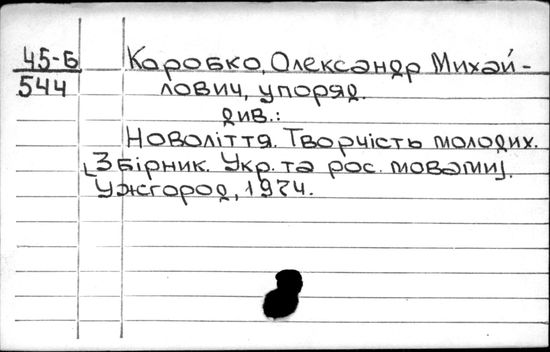 45-Б
544
Коробко, Олександр Михай-
лович, упоряд.
див.:
Новоліття. Творчість молодих.
[Збірник. Укр. та рос. мовами].
Ужгород, 1974.